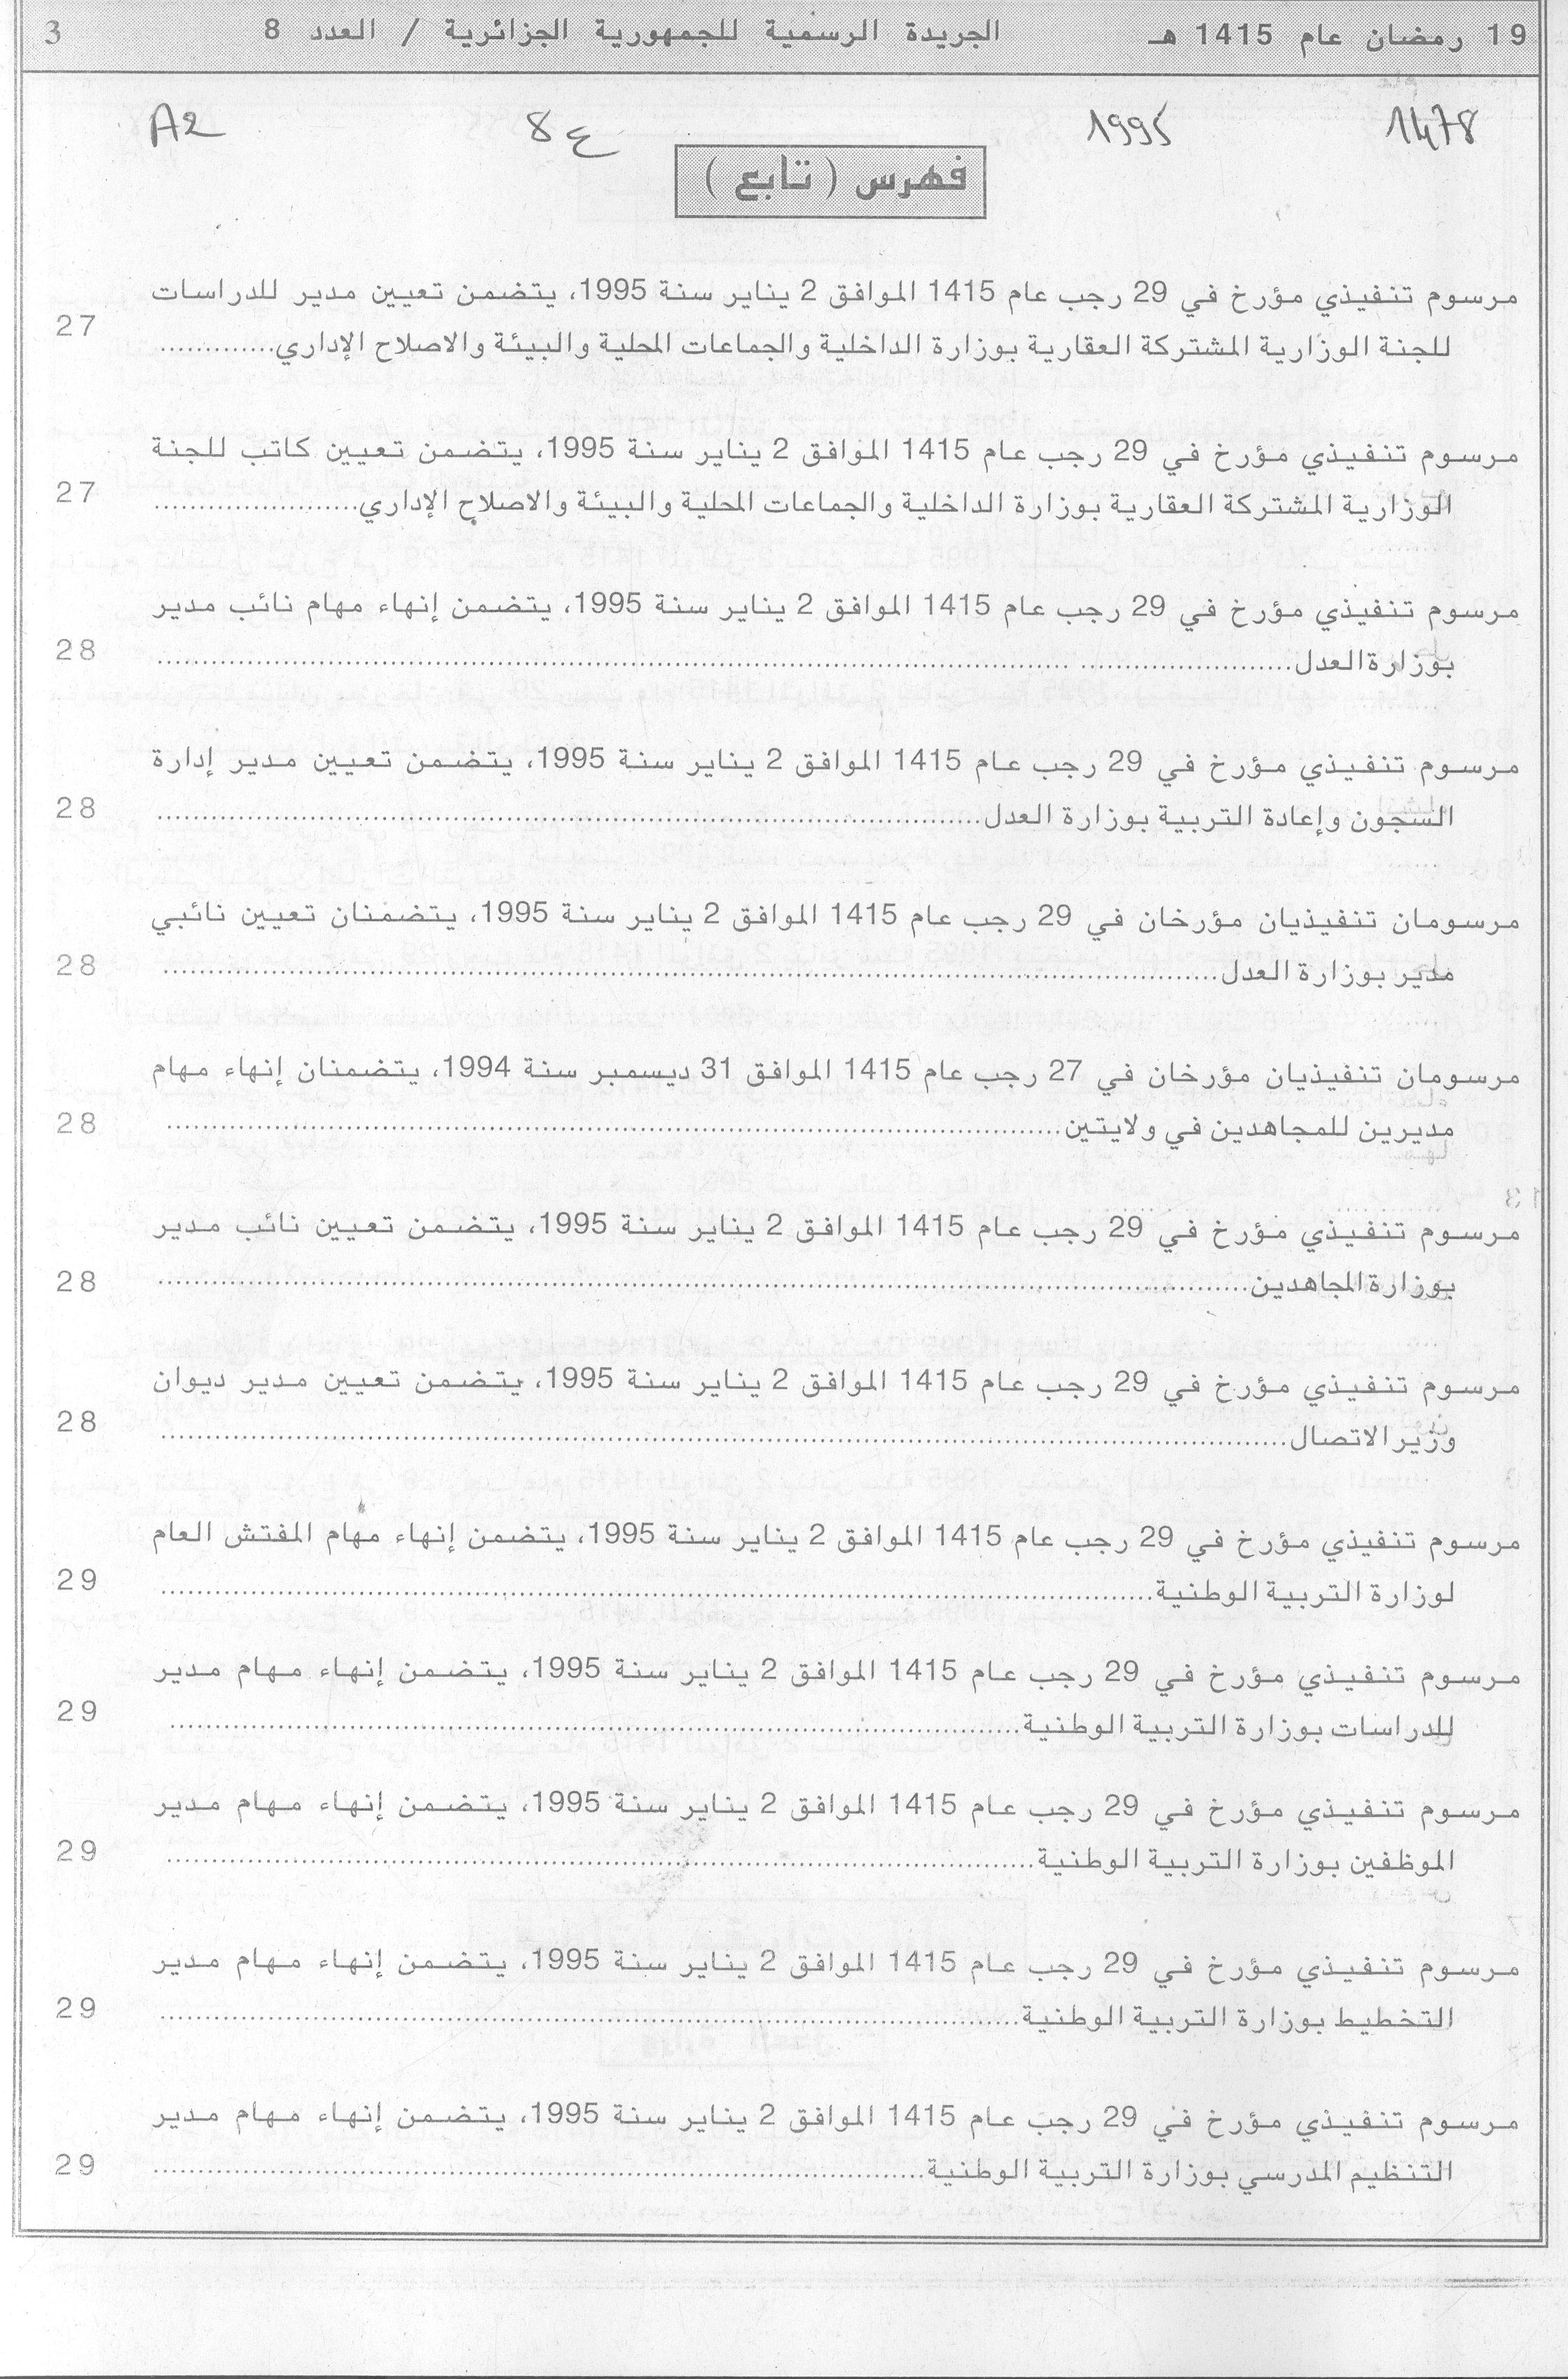 19 رمضان عام 1415 هـ الجريدة الرسمية للجمهورية الجزائرية / العدد 8 3
1478 1995 ع 8 A2
فهرس (تابع)
مرسوم تنفيذي مؤرخ في 29 رجب عام 1415 الموافق 2 يناير سنة 1995، يتضمن تعيين مدير للدراسات
للجنة الوزارية المشتركة العقارية بوزارة الداخلية والجماعات المحلية والبيئة والاصلاح الإداري............. 27
مرسوم تنفيذي مؤرخ في 29 رجب عام 1415 الموافق 2 يناير سنة 1995، يتضمن تعيين كاتب للجنة
الوزارية المشتركة العقارية بوزارة الداخلية والجماعات المحلية والبيئة والاصلاح الإداري....................... 27
مرسوم تنفيذي مؤرخ في 29 رجب عام 1415 الموافق 2 يناير سنة 1995، يتضمن إنهاء مهام نائب مدير
بوزارة العدل........................ 28
مرسوم تنفيذي مؤرخ في 29 رجب عام 1415 الموافق 2 يناير سنة 1995، يتضمن تعيين مدير إدارة
السجون وإعادة التربية بوزارة العدل........................ 28
مرسومان تنفيذيان مؤرخان في 29 رجب عام 1415 الموافق 2 يناير سنة 1995، يتضمنان تعيين نائبي
مدير بوزارة العدل........................ 28
مرسومان تنفيذيان مؤرخان في 27 رجب عام 1415 الموافق 31 ديسمبر سنة 1994، يتضمنان إنهاء مهام
مديرين للمجاهدين في ولايتين........................ 28
مرسوم تنفيذي مؤرخ في 29 رجب عام 1415 الموافق 2 يناير سنة 1995، يتضمن تعيين نائب مدير
بوزارة المجاهدين........................ 28
مرسوم تنفيذي مؤرخ في 29 رجب عام 1415 الموافق 2 يناير سنة 1995، يتضمن تعيين مدير ديوان
وزير الاتصال........................ 28
مرسوم تنفيذي مؤرخ في 29 رجب عام 1415 الموافق 2 يناير سنة 1995، يتضمن إنهاء مهام المفتش العام
لوزارة التربية الوطنية........................ 29
مرسوم تنفيذي مؤرخ في 29 رجب عام 1415 الموافق 2 يناير سنة 1995، يتضمن إنهاء مهام مدير
للدراسات بوزارة التربية الوطنية........................ 29
مرسوم تنفيذي مؤرخ في 29 رجب عام 1415 الموافق 2 يناير سنة 1995، يتضمن إنهاء مهام مدير
الموظفين بوزارة التربية الوطنية........................ 29
مرسوم تنفيذي مؤرخ في 29 رجب عام 1415 الموافق 2 يناير سنة 1995، يتضمن إنهاء مهام مدير
التخطيط بوزارة التربية الوطنية........................ 29
مرسوم تنفيذي مؤرخ في 29 رجب عام 1415 الموافق 2 يناير سنة 1995، يتضمن إنهاء مهام مدير
التنظيم المدرسي بوزارة التربية الوطنية........................ 29